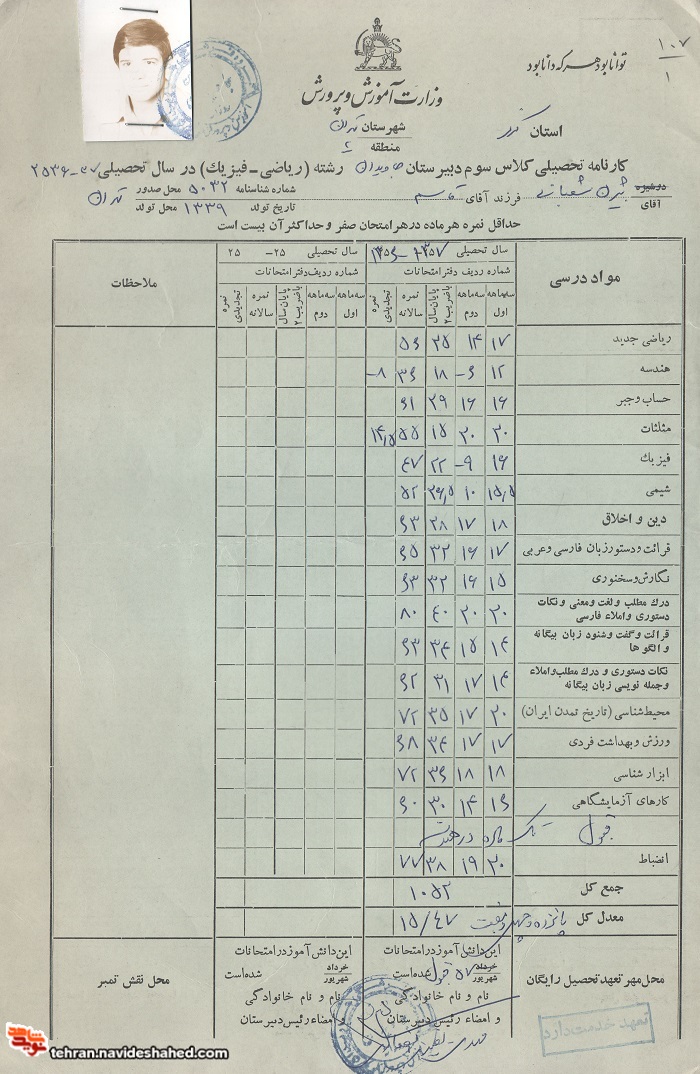 ۱۰۷
۱
توانا بود هر که دانا بود
وزارت آموزش و پرورش
استان
شهرستان تهران
منطقه ۶
کارنامه تحصیلی کلاس سوم دبیرستان جاویدان رشته (ریاضی - فیزیک) در سال تحصیلی ۳۷-۲۵۳۶
دوشیزه
آقای
شعبانی فرزند آقای قاسم شماره شناسنامه ۵۰۳۲ محل صدور تهران
تاریخ تولد ۱۳۳۹ محل تولد
حداقل نمره هر ماده در هر امتحان صفر و حداکثر آن بیست است
مواد درسی
سال تحصیلی ۱۳۵۷-۱۳۵۶
سال تحصیلی ۲۵- ۲۵
ملاحظات
شماره ردیف دفتر امتحانات
شماره ردیف دفتر امتحانات
سه ماهه اول سه ماهه دوم پایان سال با ضریب ۲ نمره سالانه نمره تجدیدی
سه ماهه اول سه ماهه دوم پایان سال با ضریب ۲ نمره سالانه نمره تجدیدی
ریاضی جدید ۱۷ ۱۴ ۲۵ ۵۶
هندسه ۱۲ ۶- ۱۸ ۳۶ ۸-
حساب و جبر ۱۶ ۱۶ ۲۹ ۶۱
مثلثات ۲۰ ۲۰ ۱۵ ۵۵ ۱۴٫۵
فیزیک ۱۶ ۹- ۲۲ ۴۷
شیمی ۱۵٫۵ ۱۰ ۲۶٫۵ ۵۲
دین و اخلاق ۱۸ ۱۷ ۲۸ ۶۳
قرائت و دستور زبان فارسی و عربی ۱۷ ۱۶ ۳۲ ۶۵
نگارش و سخنوری ۱۵ ۱۶ ۳۲ ۶۳
درک مطلب و لغت و معنی و نکات
دستوری و املاء فارسی ۲۰ ۲۰ ۴۰ ۸۰
قرائت و گفت و شنود زبان بیگانه
و الگو ها ۱۴ ۱۵ ۳۴ ۶۳
نکات دستوری و درک مطلب و املاء
و جمله نویسی زبان بیگانه ۱۴ ۱۷ ۳۱ ۶۲
محیط شناسی (تاریخ تمدن ایران) ۲۰ ۱۷ ۳۵ ۷۲
ورزش و بهداشت فردی ۱۷ ۱۷ ۳۴ ۶۸
ابزار شناسی ۱۸ ۱۸ ۳۶ ۷۲
کارهای آزمایشگاهی ۱۶ ۱۴ ۳۰ ۶۰
قبول تک ماده در هندسه
انضباط ۲۰ ۱۹ ۳۸ ۷۷
جمع کل ۱۰۵۲
معدل کل پانزده و چهل و هفت ۱۵/۴۷
محل مهر تعهد تحصیل رایگان
این دانش آموز در امتحانات
خرداد
شهریور
۵۷ قبول شده است
نام و نام خانوادگی
و امضاء رئیس دبیرستان
این دانش آموز در امتحانات
خرداد
شهریور
شده است
نام و نام خانوادگی
و امضاء رئیس دبیرستان
محل نقش تمبر
تعهد خدمت دارد
نوید شاهد
tehran.navideshahed.com